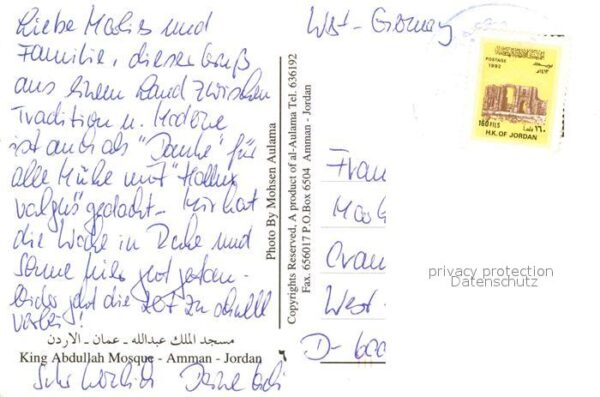 Liebe Marlies und
Familie, dieser Gruß
aus einem Land zwischen
Tradition u. Moderne
ist auch als "Danke" für
alle Mühe mit "Hallux
valgus" gedacht - Mir hat
die Woche in Ruhe und
Sonne hier gut getan -
leider geht die Zeit zu schnell
vorbei!
مسجد الملك عبدالله - عمان - الاردن
King Abdullah Mosque - Amman - Jordan
Sehr herzlich Deine
Photo By Mohsen Aulama
Copyrights Reserved, A product of al-Aulama Tel. 636192
Fax. 656017 P.O.Box 6504 Amman - Jordan
٦
West - Germany
POSTAGE
1992
160 FILS
١٦٠
H.K. OF JORDAN
Frau
West -
D-
privacy protection
Datenschutz